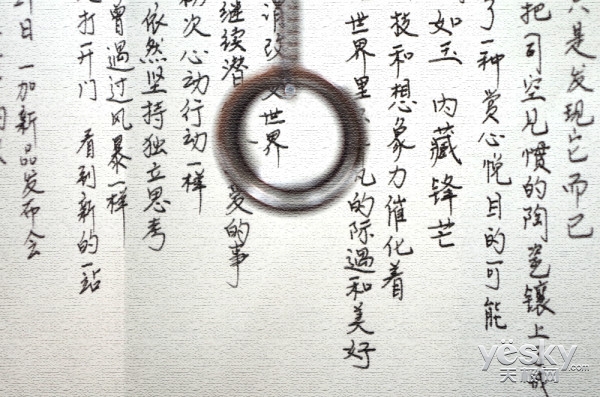 是发现它而已
把司空见惯的陶瓷镶上
了一种赏心悦目的可能
如玉 内藏锋芒
技和想象力催化着
世界里 凡的际遇和美好
谓改 世界
继续潜 爱的事
初次心动行动一样
依然坚持独立思考
曾遇过风暴一样
打开门 看到新的一站
日 一加新品发布会
yesky
天极网